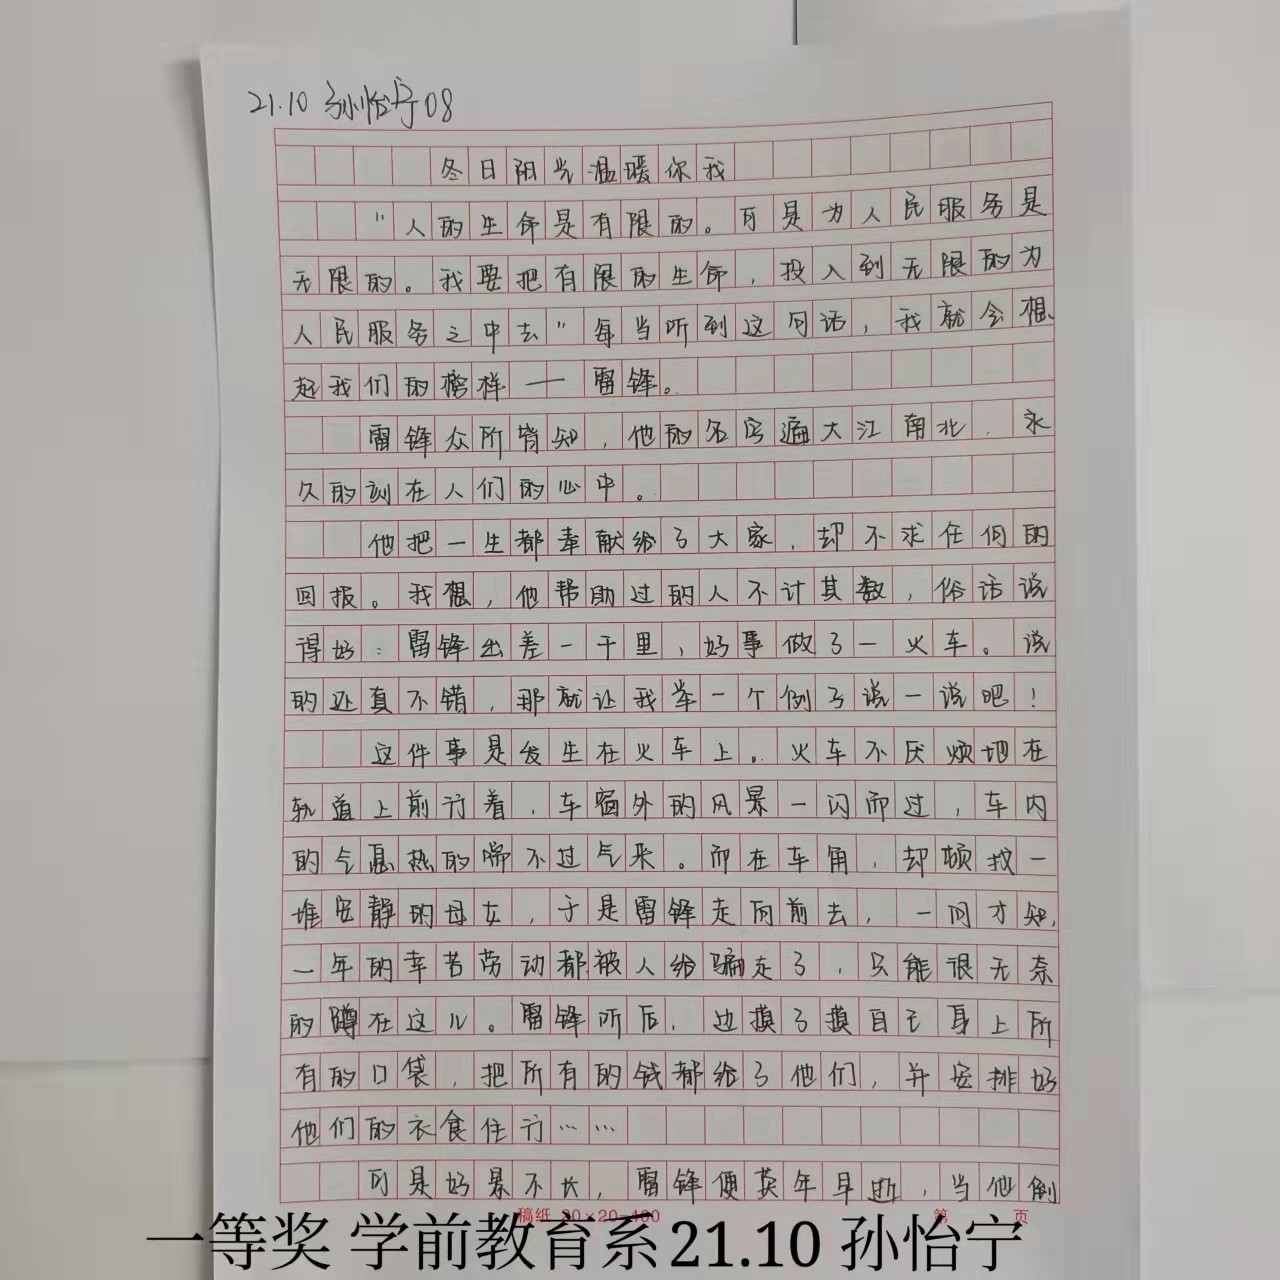 21.10 孙怡宁08
冬日阳光温暖你我
"人的生命是有限的。可是为人民服务是
无限的。我要把有限的生命,投入到无限的为
人民服务之中去"每当听到这句话,我就会想
起我们的榜样——雷锋。
雷锋众所皆知,他的名字遍大江南北,永
久的刻在人们的心中。
他把一生都奉献给了大家,却不求任何的
回报。我想,他帮助过的人不计其数,俗话说
得好:雷锋出差一千里,好事做了一火车。说
的还真不错,那就让我举一个例子说一说吧!
这件事是发生在火车上。火车不厌烦地在
轨道上前行着,车窗外的风景一闪而过,车内
的气息热的喘不过气来。而在车角,却蜷着一
堆安静的母女,于是雷锋走向前去,一问才知,
一年的辛苦劳动都被人给骗走了,只能很无奈
的蹲在这儿。雷锋听后,边摸了摸自己身上所
有的口袋,把所有的钱都给了他们,并安排好
他们的衣食住行……
可是好景不长,雷锋便英年早逝,当他倒
稿纸 20×20=400 第 页
一等奖 学前教育系21.10 孙怡宁